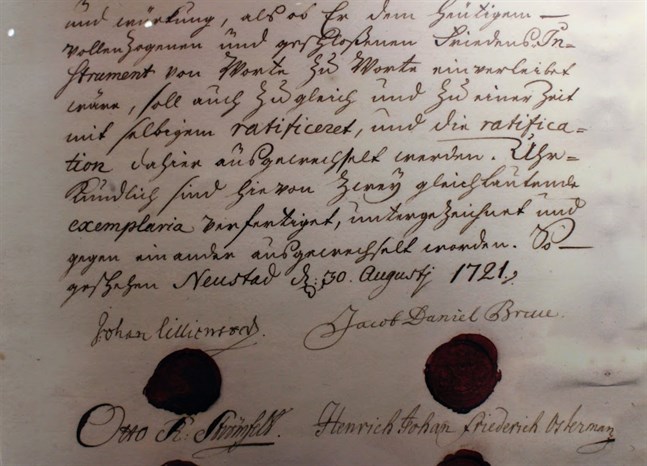 und würkung, als ob Er dem heütigem
vollenzogenen und geschloßenen Friedens In=
strument von Worte zu Worte einverleibet
wäre, soll auch zugleich und zu einer Zeit
mit selbigem ratificeret, und die ratifica=
tion dahier ausgewechselt werden. Uhr=
kundlich sind hievon zwey gleichlautende
exemplaria verfertiget, untergezeichnet und
gegen ein ander ausgewechselt worden. So
geschehen Neustad d: 30. Augustj 1721,
Johan Lillienstedt. Jacob Daniel Bruce.
Otto R: Strömfelt. Henrich Johan Friederich Osterman